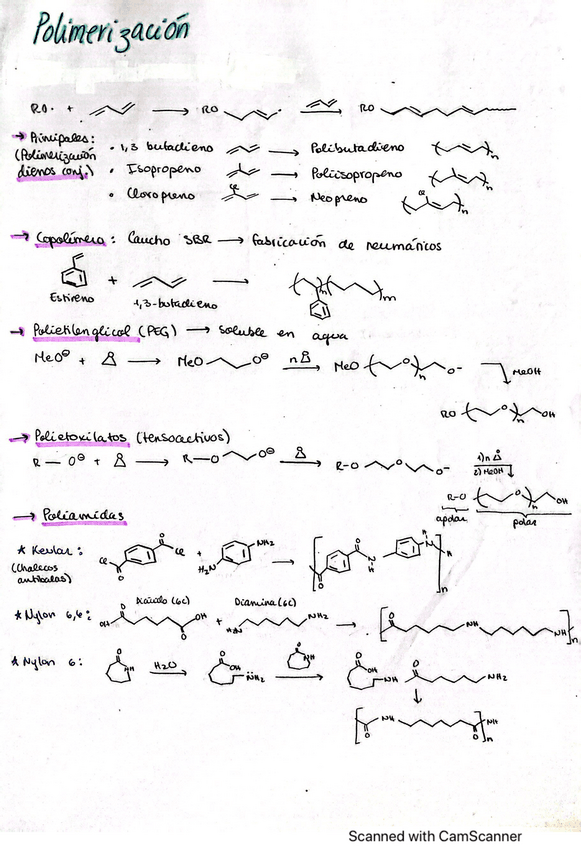 Polimerización
RO· + ⟶ RO ⟶ RO
→ Principales:
(Polimerización
dienos conj.)
• 1,3 butadieno ⟶ Polibutadieno n
• Isopropeno ⟶ Poliisopropeno n
• Cloropreno Cl ⟶ Neopreno Cl n
→ Copolímero: Caucho SBR ⟶ fabricación de neumáticos
+ ⟶ n m
Estireno 1,3-butadieno
→ Polietilenglicol (PEG) ⟶ Soluble en agua
MeO⊖ + O ⟶ MeO O⊖ nO ⟶ MeO O n O- MeOH
RO O n OH
→ Polietoxilatos (tensoactivos)
R—O⊖ + O ⟶ R—O O⊖ O ⟶ R-O O O- 1) n O 2) MeOH
R-O O n OH
apolar polar
→ Poliamidas
* Kevlar:
(Chalecos
antibalas)
Cl O O Cl + H2N NH2 ⟶ O O N H H N n
* Nylon 6,6: Diácido (6C) Diamina (6C)
OH O O OH + H2N NH2 ⟶ O NH NH n
* Nylon 6: O NH H2O ⟶ O OH NH2 O NH ⟶ O OH NH O NH2
O NH O NH n
Scanned with CamScanner